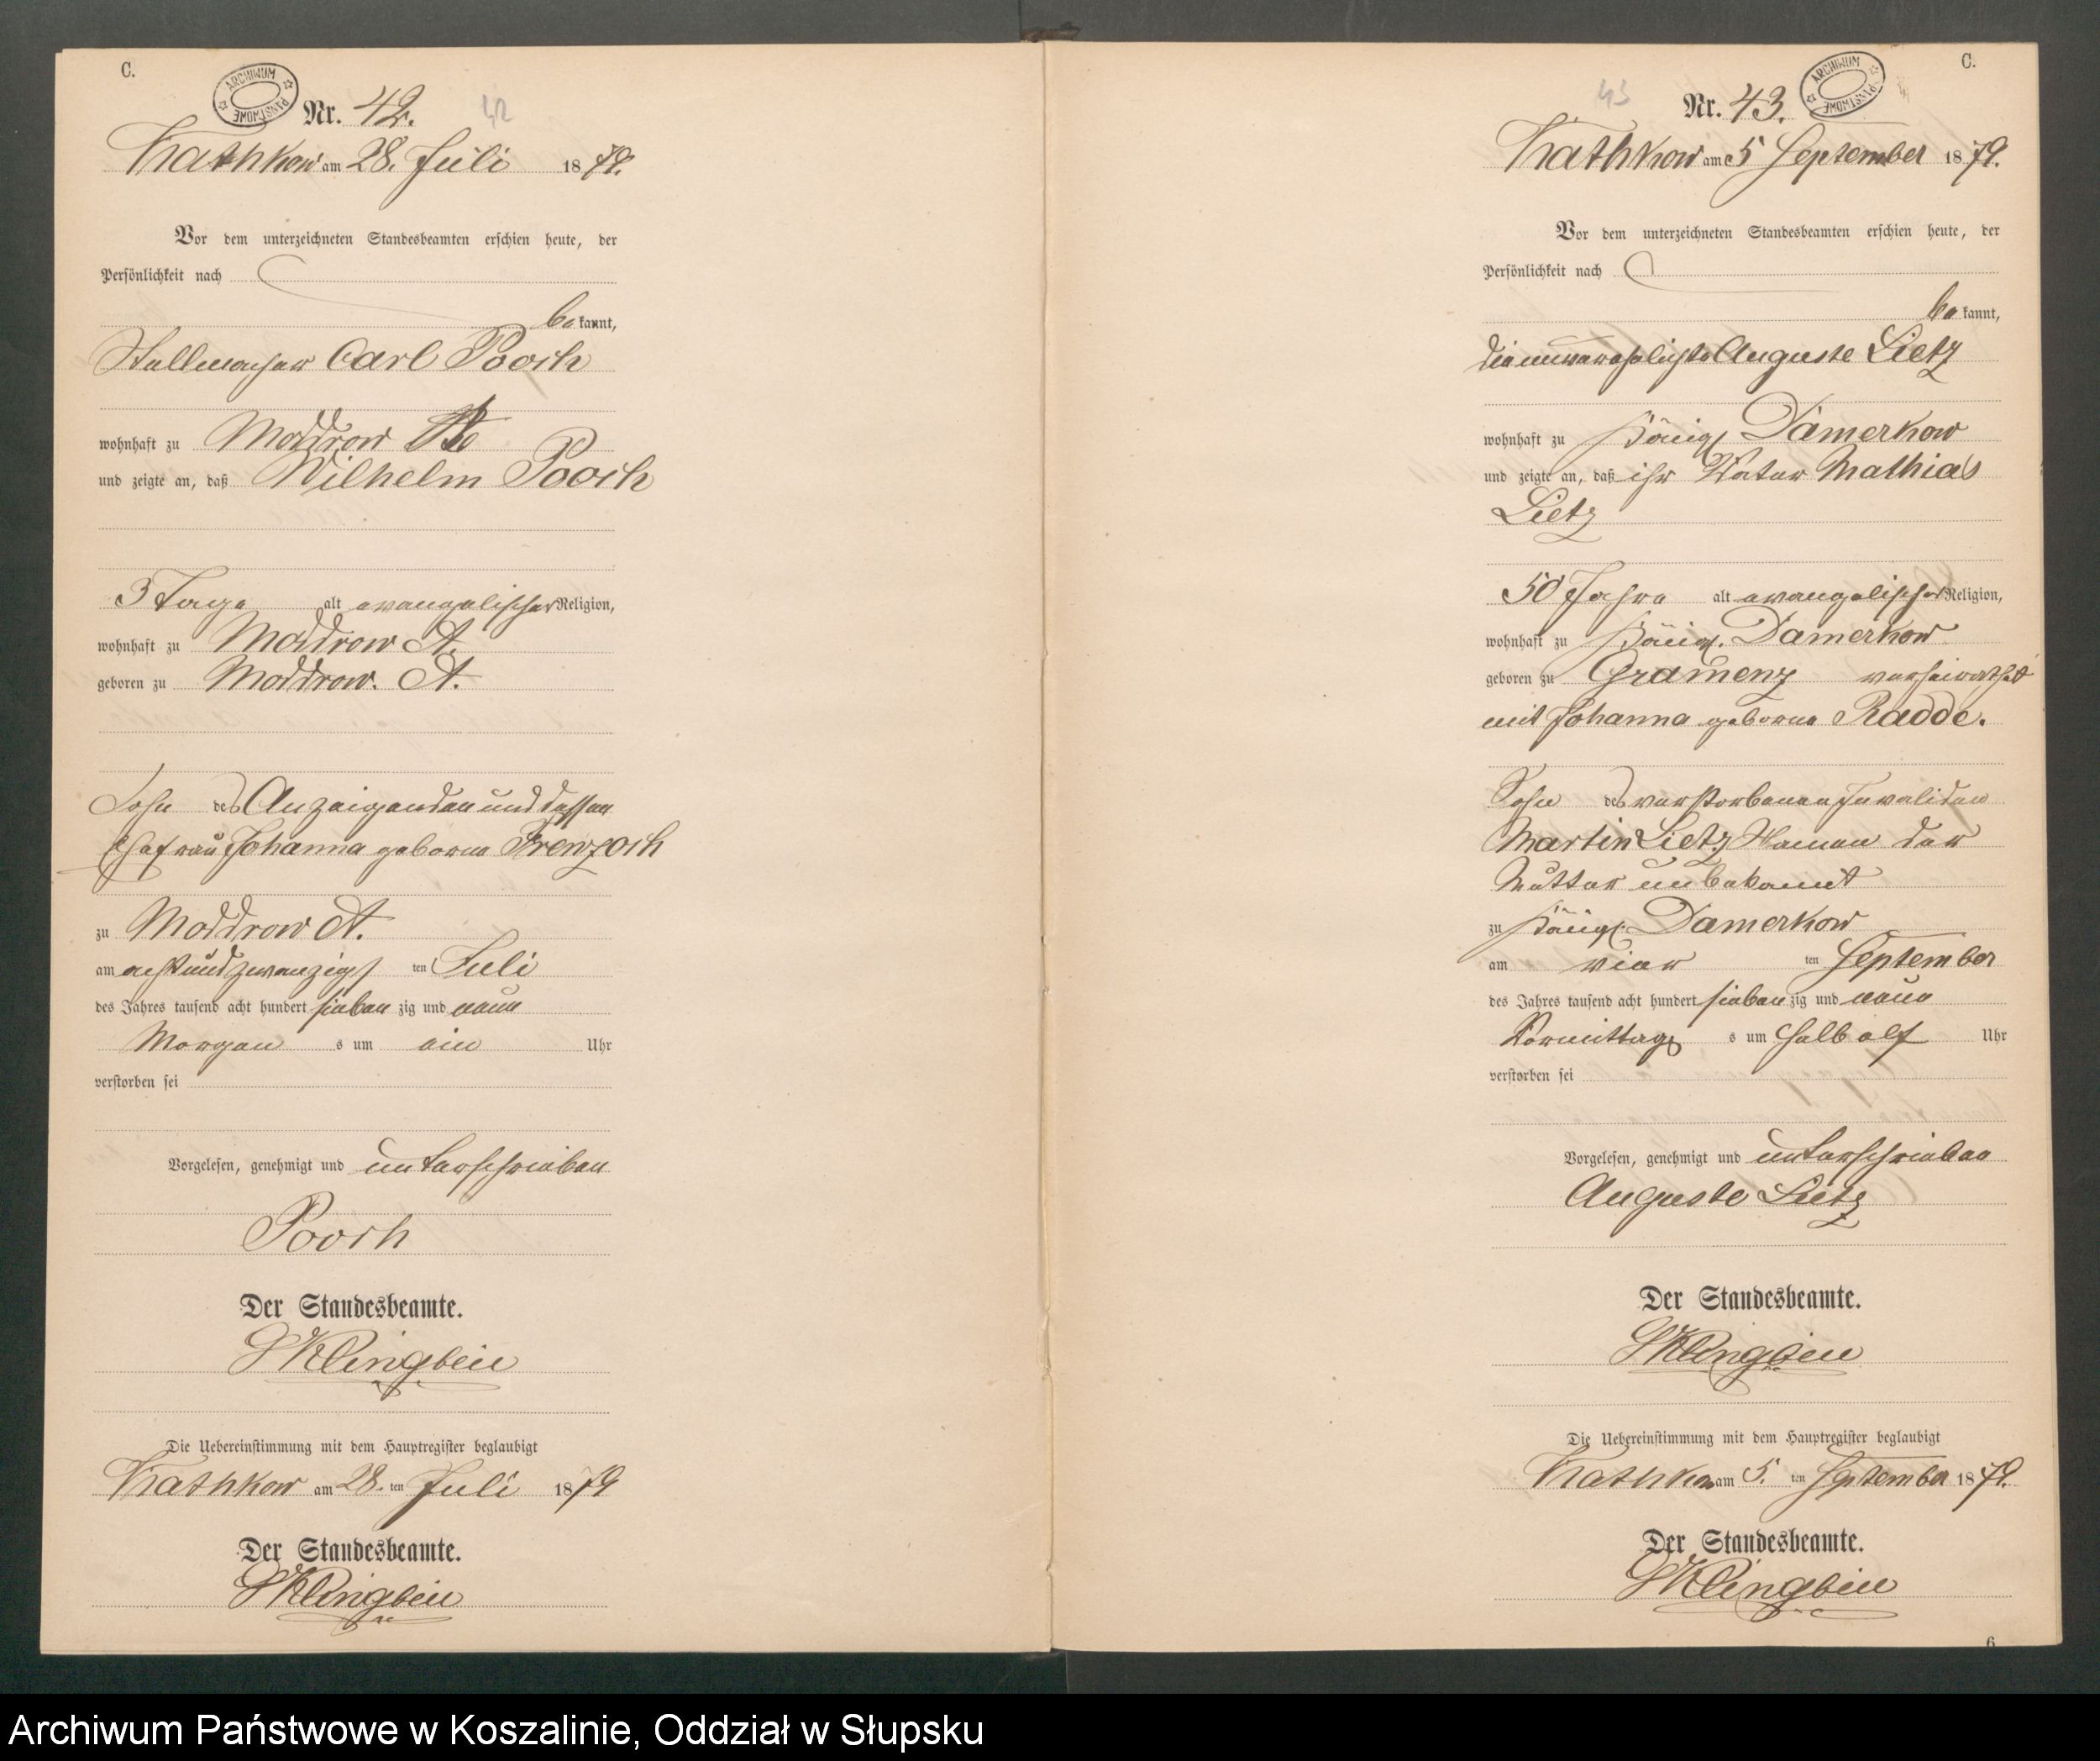 C.
ARCHIWUM PAŃSTWOWE
Nr. 42.
42
Kathkow am 28. Juli 1879.
Vor dem unterzeichneten Standesbeamten erschien heute, der
Persönlichkeit nach
be kannt,
Stellmacher Carl Pooch
wohnhaft zu Moddrow
und zeigte an, daß Wilhelm Pooch
3 Tage alt evangelischer Religion,
wohnhaft zu Moddrow A.
geboren zu Moddrow. A.
Sohn des Anzeigenden und dessen
Ehefrau Johanna geborne
zu Moddrow A.
am achtundzwanzigsten Juli
des Jahres tausend acht hundert sieben zig und neun
Morgen s um ein Uhr
verstorben sei
Vorgelesen, genehmigt und unterschrieben
Pooch
Der Standesbeamte.
Klingbeil
Die Uebereinstimmung mit dem Hauptregister beglaubigt
Kathkow am 28. ten Juli 1879
Der Standesbeamte.
Klingbeil
C.
ARCHIWUM PAŃSTWOWE
43
Nr. 43.
Kathkow am 5 September 1879.
Vor dem unterzeichneten Standesbeamten erschien heute, der
Persönlichkeit nach
be kannt,
die unverehelichte Auguste Lietz
wohnhaft zu Königl Damerkow
und zeigte an, daß ihr Vater Mathias
Lietz
50 Jahre alt evangelischer Religion,
wohnhaft zu Königl. Damerkow
geboren zu Gramenz verheirathet
mit Johanna geborne Radde.
Sohn des verstorbenen Invaliden
Martin Lietz, Namen der
Mutter unbekannt
zu Königl. Damerkow
am vier ten September
des Jahres tausend acht hundert sieben zig und neun
Vormittag s um halb elf Uhr
verstorben sei
Vorgelesen, genehmigt und unterschrieben
Auguste Lietz
Der Standesbeamte.
Klingbeil
Die Uebereinstimmung mit dem Hauptregister beglaubigt
Kathkow am 5. ten September 1879.
Der Standesbeamte.
Klingbeil
6
Archiwum Państwowe w Koszalinie, Oddział w Słupsku